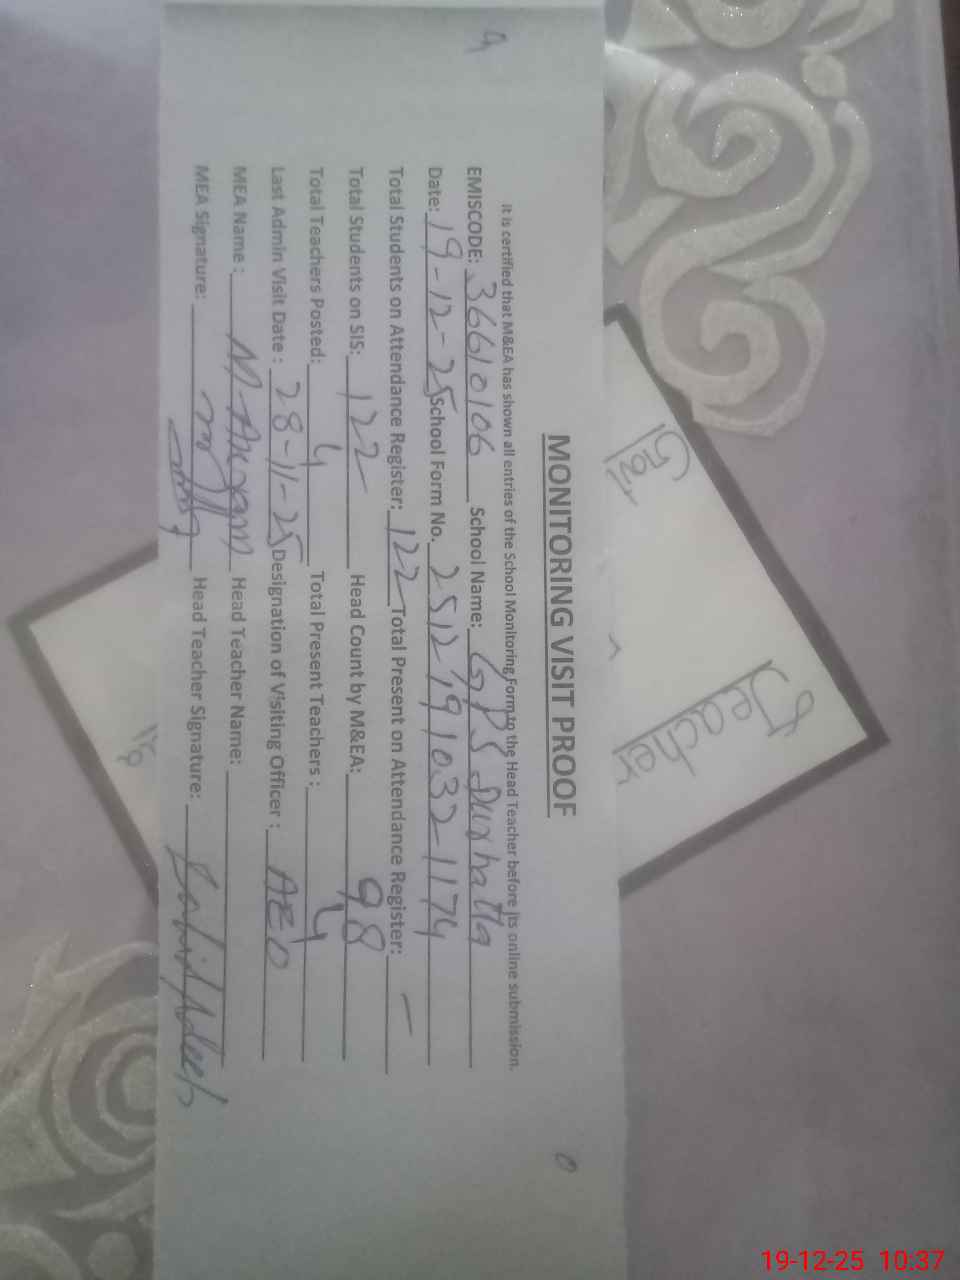 MONITORING VISIT PROOF
It is certified that M&EA has shown all entries of the School Monitoring Form to the Head Teacher before its online submission.
EMISCODE: 36610106 School Name: GPS Durhatta
Date: 19-12-25 School Form No. 2512191032-1174
Total Students on Attendance Register: 122 Total Present on Attendance Register: —
Total Students on SIS: 122 Head Count by M&EA: 98
Total Teachers Posted: 4 Total Present Teachers : 4
Last Admin Visit Date : 28-11-25 Designation of Visiting Officer : AEO
MEA Name : M. Akram Head Teacher Name:
MEA Signature: Head Teacher Signature:
Teacher
19-12-25 10:37